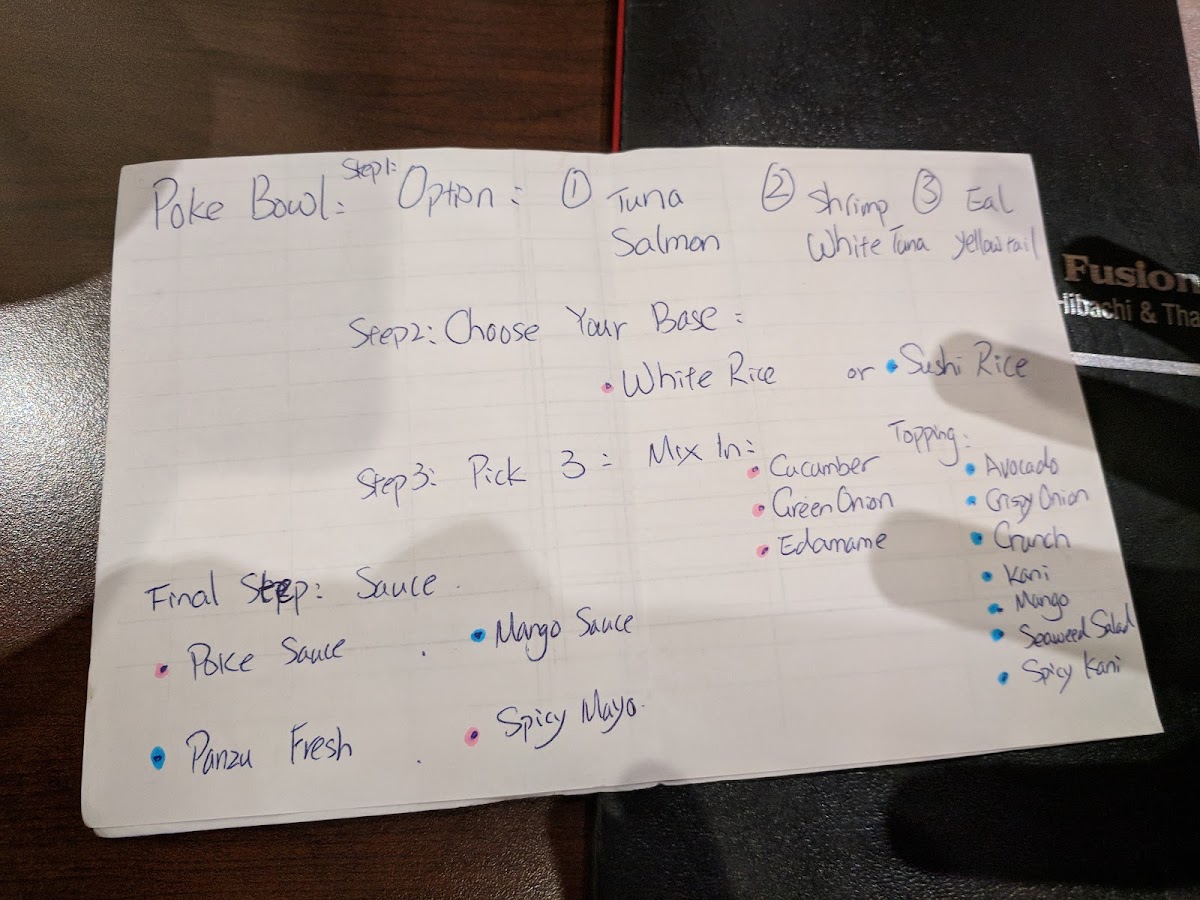 Poke Bowl: Step1: Option: ① Tuna ② Shrimp ③ Eal
Salmon White Tuna Yellowtail
Fusion
Hibachi & Tha
Step2: Choose Your Base:
• White Rice or • Sushi Rice
Step3: Pick 3: Mix In:
• Cucumber
• Green Onion
• Edamame
Topping:
• Avocado
• Crispy Onion
• Crunch
• Kani
• Mango
• Seaweed Salad
• Spicy Kani
Final Step: Sauce.
• Poke Sauce . • Mango Sauce
• Panzu Fresh . • Spicy Mayo.